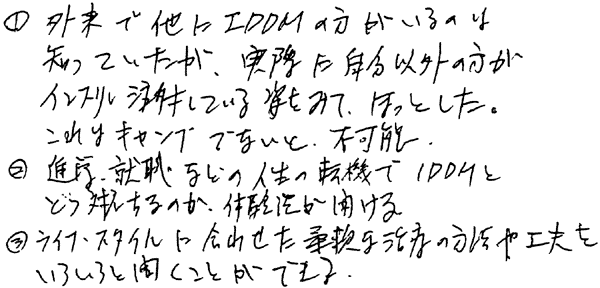 ① 外来で他にIDDMの方がいるのは
知っていたが、実際に自分以外の方が
インスリン注射している姿をみて、ほっとした。
これはキャンプでないと、不可能。
② 進学、就職などの人生の転機でIDDMと
どう対峙するのか、体験談が聞ける
③ ライフ・スタイルに合わせた柔軟な治療の方法や工夫を
いろいろと聞くことができる。